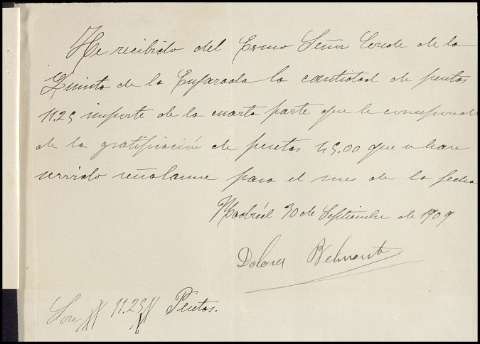 He recibido del Exmo Señor Conde de la
Quinta de la Enjarada la cantidad de pesetas
11.25 importe de la cuarta parte que le corresponde
de la gratificación de pesetas 45,00 que se han
servido señalarme para el mes de la fecha
Madrid 30 de Septiembre de 1909
Dolores Belmonte
Son 11.25 Pesetas.